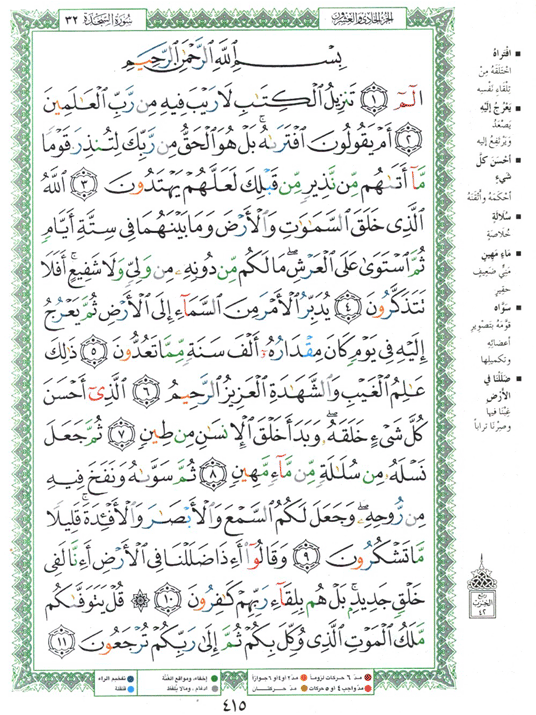 الجزء الحادي والعشرون
سورة السجدة ٣٢
بِسْمِ اللَّهِ الرَّحْمَٰنِ الرَّحِيمِ
الٓمٓ ١ تَنزِيلُ الْكِتَٰبِ لَا رَيْبَ فِيهِ مِن رَّبِّ الْعَٰلَمِينَ
٢ أَمْ يَقُولُونَ افْتَرَىٰهُ بَلْ هُوَ الْحَقُّ مِن رَّبِّكَ لِتُنذِرَ قَوْمًا
مَّآ أَتَىٰهُم مِّن نَّذِيرٍ مِّن قَبْلِكَ لَعَلَّهُمْ يَهْتَدُونَ ٣ اللَّهُ
الَّذِى خَلَقَ السَّمَٰوَٰتِ وَالْأَرْضَ وَمَا بَيْنَهُمَا فِى سِتَّةِ أَيَّامٍ
ثُمَّ اسْتَوَىٰ عَلَى الْعَرْشِ مَا لَكُم مِّن دُونِهِ مِن وَلِىٍّ وَلَا شَفِيعٍ أَفَلَا
تَتَذَكَّرُونَ ٤ يُدَبِّرُ الْأَمْرَ مِنَ السَّمَآءِ إِلَى الْأَرْضِ ثُمَّ يَعْرُجُ
إِلَيْهِ فِى يَوْمٍ كَانَ مِقْدَارُهُ أَلْفَ سَنَةٍ مِّمَّا تَعُدُّونَ ٥ ذَٰلِكَ
عَٰلِمُ الْغَيْبِ وَالشَّهَٰدَةِ الْعَزِيزُ الرَّحِيمُ ٦ الَّذِىٓ أَحْسَنَ
كُلَّ شَىْءٍ خَلَقَهُ وَبَدَأَ خَلْقَ الْإِنسَٰنِ مِن طِينٍ ٧ ثُمَّ جَعَلَ
نَسْلَهُ مِن سُلَٰلَةٍ مِّن مَّآءٍ مَّهِينٍ ٨ ثُمَّ سَوَّىٰهُ وَنَفَخَ فِيهِ
مِن رُّوحِهِ وَجَعَلَ لَكُمُ السَّمْعَ وَالْأَبْصَٰرَ وَالْأَفْـِٔدَةَ قَلِيلًا
مَّا تَشْكُرُونَ ٩ وَقَالُوٓا أَءِذَا ضَلَلْنَا فِى الْأَرْضِ أَءِنَّا لَفِى
خَلْقٍ جَدِيدٍ بَلْ هُم بِلِقَآءِ رَبِّهِمْ كَٰفِرُونَ ١٠ ۞ قُلْ يَتَوَفَّىٰكُم
مَّلَكُ الْمَوْتِ الَّذِى وُكِّلَ بِكُمْ ثُمَّ إِلَىٰ رَبِّكُمْ تُرْجَعُونَ ١١
■ افتراهُ
اختلقهُ منْ
تلقاءِ نفْسِه
■ يَعْرُجُ إليْهِ
يَصْعَدُ
ويَرْتَفِعُ إليه
■ أحْسَنَ كلَّ
شيءٍ
أحْكمَهُ وأتْقنَهُ
■ سُلالةٍ
خُلاصَةٍ
■ ماءٍ مَهينٍ
مَنِيٍّ ضَعيفٍ
حقيرٍ
■ سَوَّاه
قوّمَهُ بتصْويرِ
أعضائِهِ
وتكميلِها
■ ضَلَلْنا في
الأرْضِ
غِبْنا فيها
وصِرْنا تراباً
ربع
الحزب
٤٢
مدّ ٦ حركات لزوماً مدّ ٢ أو ٤ أو ٦ جوازاً
مدّ واجب ٤ أو ٥ حركات مدّ حركتان
إخفاء، ومواقع الغنّة
إدغام، وما لا يُلفظ
تفخيم الراء
قلقلة
٤١٥